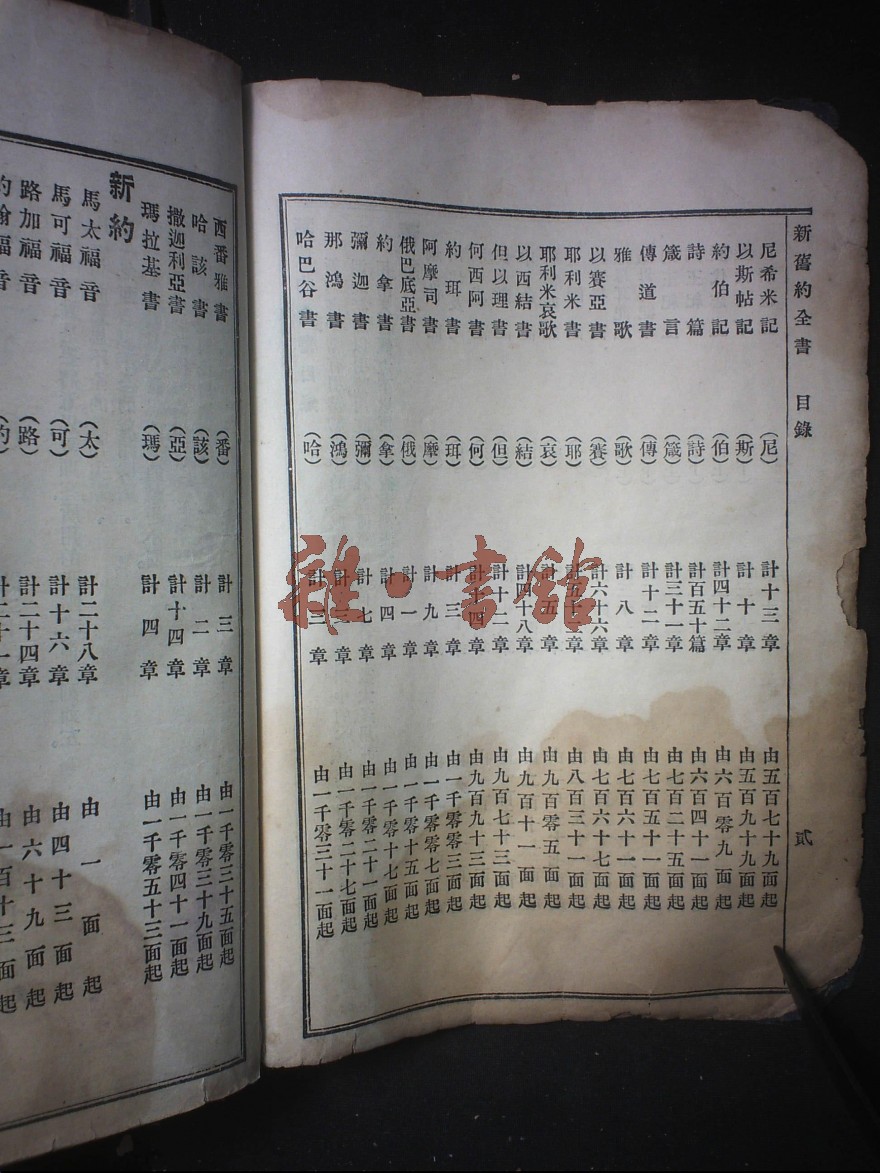 新舊約全書 目錄 貳
尼希米記 (尼) 計十三章 由五百七十九面起
以斯帖記 (斯) 計十章 由五百九十九面起
約伯記 (伯) 計四十二章 由六百零九面起
詩篇 (詩) 計百五十篇 由六百四十一面起
箴言 (箴) 計三十一章 由七百二十五面起
傳道書 (傳) 計十二章 由七百五十一面起
雅歌 (歌) 計八章 由七百六十一面起
以賽亞書 (賽) 計六十六章 由七百六十七面起
耶利米書 (耶) 計五十二章 由八百三十一面起
耶利米哀歌 (哀) 計五章 由九百零五面起
以西結書 (結) 計四十八章 由九百十一面起
但以理書 (但) 計十二章 由九百七十三面起
何西阿書 (何) 計十四章 由九百九十三面起
約珥書 (珥) 計三章 由一千零三面起
阿摩司書 (摩) 計九章 由一千零零七面起
俄巴底亞書 (俄) 計一章 由一千零十五面起
約拿書 (拿) 計四章 由一千零十七面起
彌迦書 (彌) 計七章 由一千零二十一面起
那鴻書 (鴻) 計三章 由一千零二十七面起
哈巴谷書 (哈) 計三章 由一千零三十一面起
西番雅書 (番) 計三章 由一千零三十五面起
哈該書 (該) 計二章 由一千零三十九面起
撒迦利亞書 (亞) 計十四章 由一千零四十一面起
瑪拉基書 (瑪) 計四章 由一千零五十三面起
新約
馬太福音 (太) 計二十八章 由一面起
馬可福音 (可) 計十六章 由四十三面起
路加福音 (路) 計二十四章 由六十九面起
約翰福音 (約) 計二十一章 由一百十三面起
雜·書館